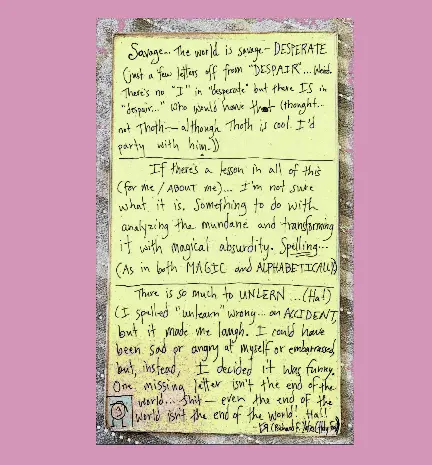 Savage... The world is savage - DESPERATE
(just a few letters off from "DESPAIR"... Weird.
There's no "I" in "desperate" but there IS in
"despair..." Who would have that (thought...
not Thoth — although Thoth is cool. I'd
party with him.))
If there's a lesson in all of this
(for me / ABOUT me)... I'm not sure
what it is. Something to do with
analyzing the mundane and transforming
it with magical absurdity. Spelling...
(As in both MAGIC and ALPHABETICALLY)
There is so much to UNLERN ...(Ha!)
(I spelled "unlearn" wrong... on ACCIDENT,
but it made me laugh. I could have
been sad or angry at myself or embarrassed
but, instead, I decided it was funny.
One missing letter isn't the end of the
world... shit - even the end of the
world isn't the end of the world! Ha!!
(Richard F.